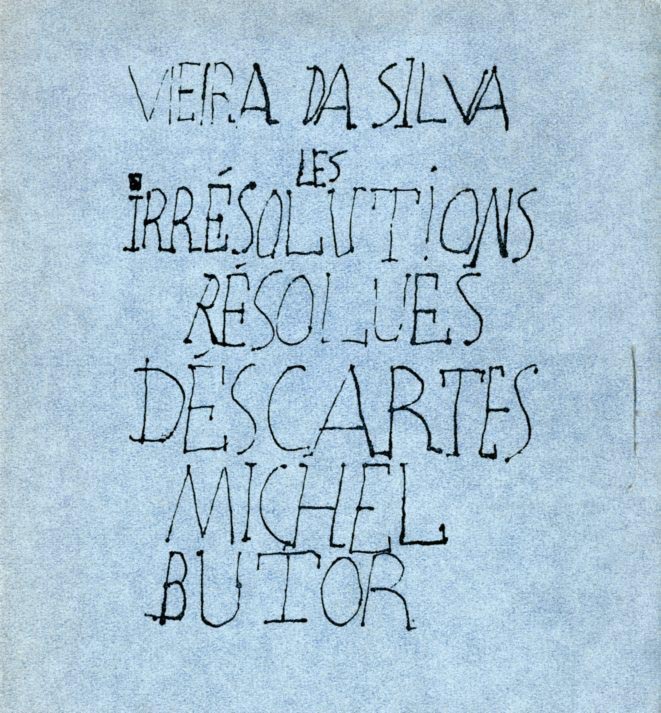 VIEIRA DA SILVA
LES
IRRÉSOLUTIONS
RÉSOLUES
DÉSCARTES
MICHEL
BUTOR